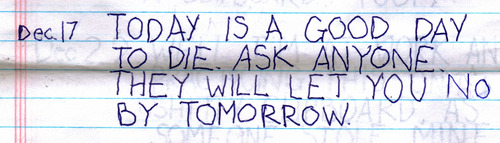 Dec. 17 TODAY IS A GOOD DAY
TO DIE. ASK ANYONE.
THEY WILL LET YOU NO
BY TOMORROW.
SOMEONE STOLE MINE